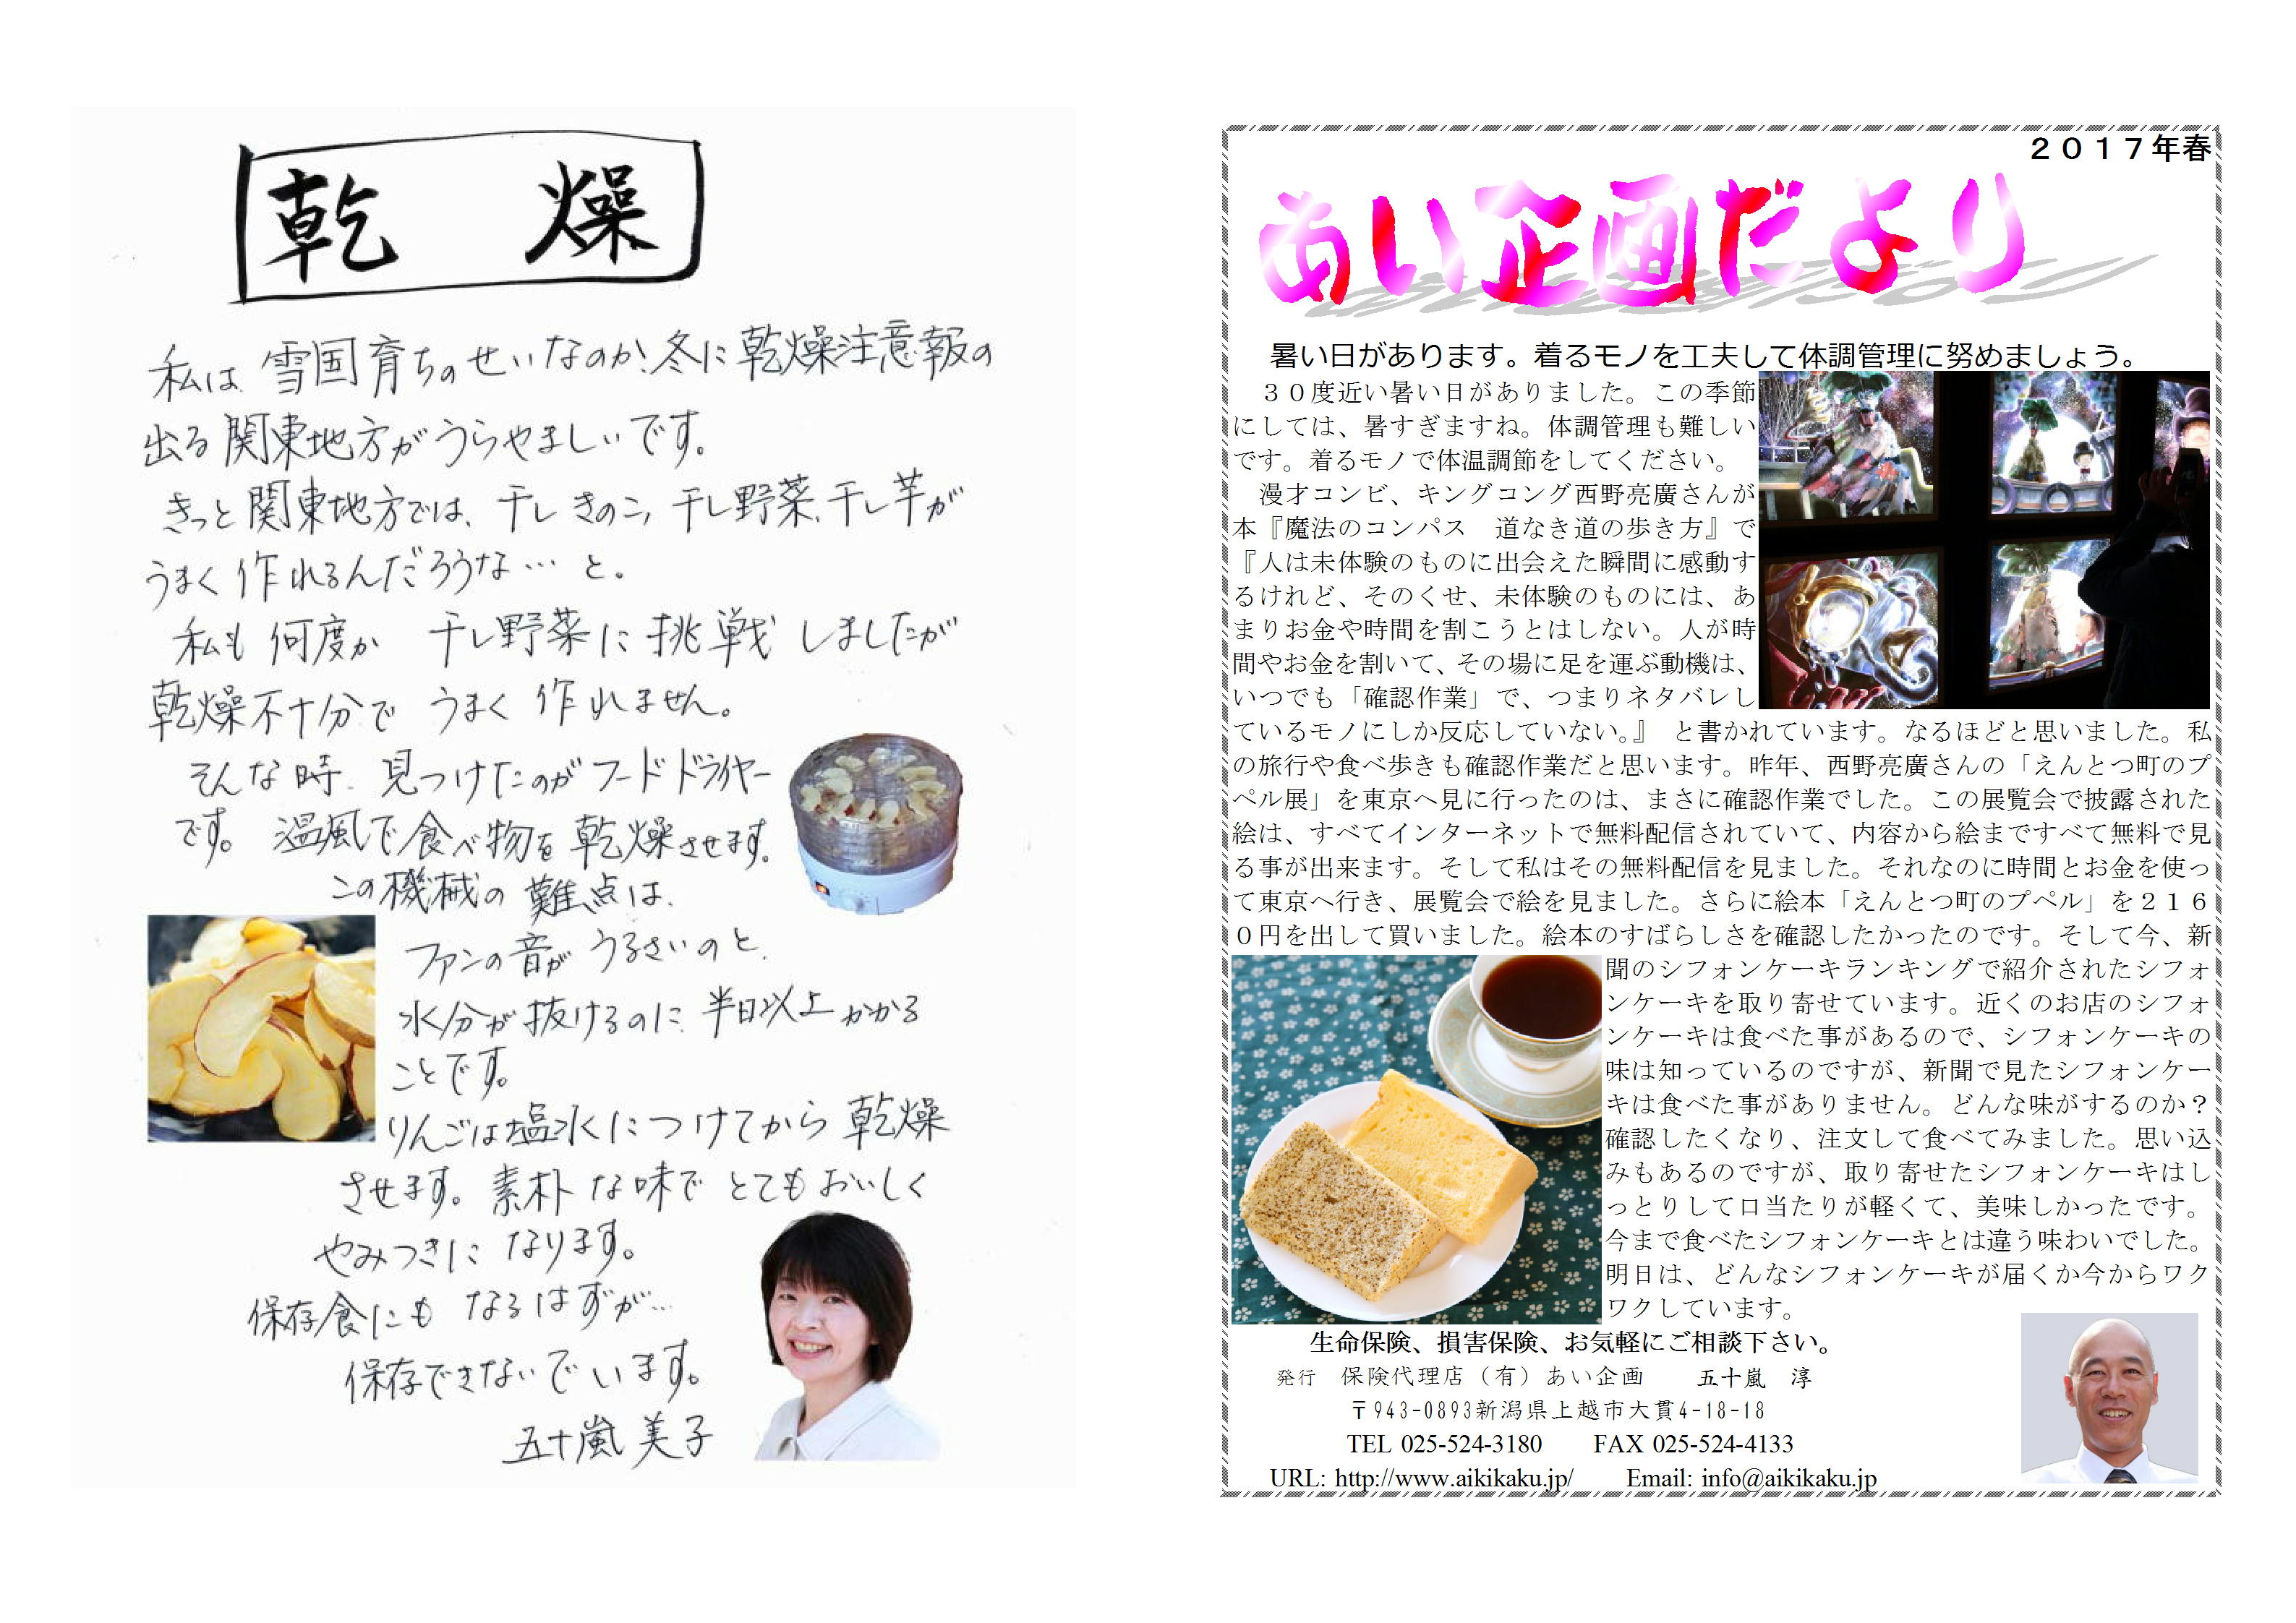 乾 燥
私は雪国育ちのせいなのか、冬に乾燥注意報の
出る関東地方がうらやましいです。
きっと関東地方では、干しきのこ、干し野菜、干し芋が
うまく作れるんだろうな…と。
私も何度か 干し野菜に挑戦しましたが
乾燥不十分で うまく作れません。
そんな時、見つけたのがフードドライヤー
です。温風で食べ物を乾燥させます。
この機械の難点は、
ファンの音がうるさいのと、
水分が抜けるのに半日以上かかる
ことです。
りんごは塩水につけてから乾燥
させます。素朴な味でとてもおいしく
やみつきになります。
保存食にもなるはずが…
保存できないでいます。
五十嵐 美子
２０１７年春
あい企画だより
暑い日があります。着るモノを工夫して体調管理に努めましょう。
３０度近い暑い日がありました。この季節
にしては、暑すぎますね。体調管理も難しい
です。着るモノで体温調節をしてください。
漫才コンビ、キングコング西野亮廣さんが
本『魔法のコンパス　道なき道の歩き方』で
『人は未体験のものに出会えた瞬間に感動す
るけれど、そのくせ、未体験のものには、あ
まりお金や時間を割こうとはしない。人が時
間やお金を割いて、その場に足を運ぶ動機は、
いつでも「確認作業」で、つまりネタバレし
ているモノにしか反応していない。』　と書かれています。なるほどと思いました。私
の旅行や食べ歩きも確認作業だと思います。昨年、西野亮廣さんの「えんとつ町のプ
ペル展」を東京へ見に行ったのは、まさに確認作業でした。この展覧会で披露された
絵は、すべてインターネットで無料配信されていて、内容から絵まですべて無料で見
る事が出来ます。そして私はその無料配信を見ました。それなのに時間とお金を使っ
て東京へ行き、展覧会で絵を見ました。さらに絵本「えんとつ町のプペル」を２１６
０円を出して買いました。絵本のすばらしさを確認したかったのです。そして今、新
聞のシフォンケーキランキングで紹介されたシフォ
ンケーキを取り寄せています。近くのお店のシフォ
ンケーキは食べた事があるので、シフォンケーキの
味は知っているのですが、新聞で見たシフォンケー
キは食べた事がありません。どんな味がするのか？
確認したくなり、注文して食べてみました。思い込
みもあるのですが、取り寄せたシフォンケーキはし
っとりして口当たりが軽くて、美味しかったです。
今まで食べたシフォンケーキとは違う味わいでした。
明日は、どんなシフォンケーキが届くか今からワク
ワクしています。
生命保険、損害保険、お気軽にご相談下さい。
発行　保険代理店（有）あい企画　　五十嵐　淳
〒943-0893新潟県上越市大貫4-18-18
TEL 025-524-3180　　FAX 025-524-4133
URL: http://www.aikikaku.jp/　　Email: info@aikikaku.jp